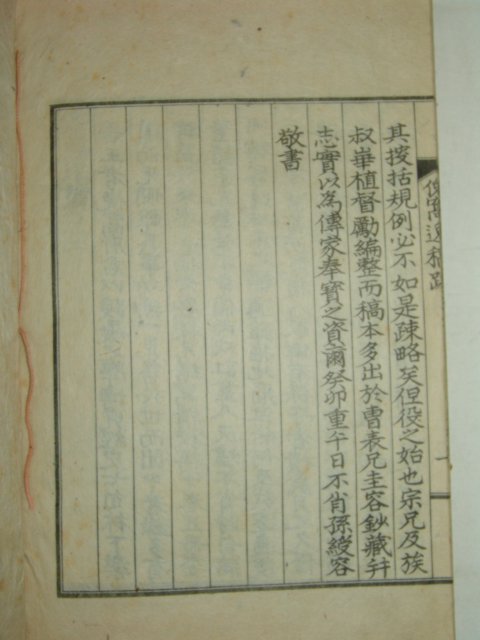 遺稿跋
其按括規例必不如是疎略矣但役之始也宗兄及族
叔崋植督勵編整而稿本多出於曺表兄圭容鈔藏幷
志實以爲傳家奉寶之資爾癸卯重午日不肖孫綬容
敬書